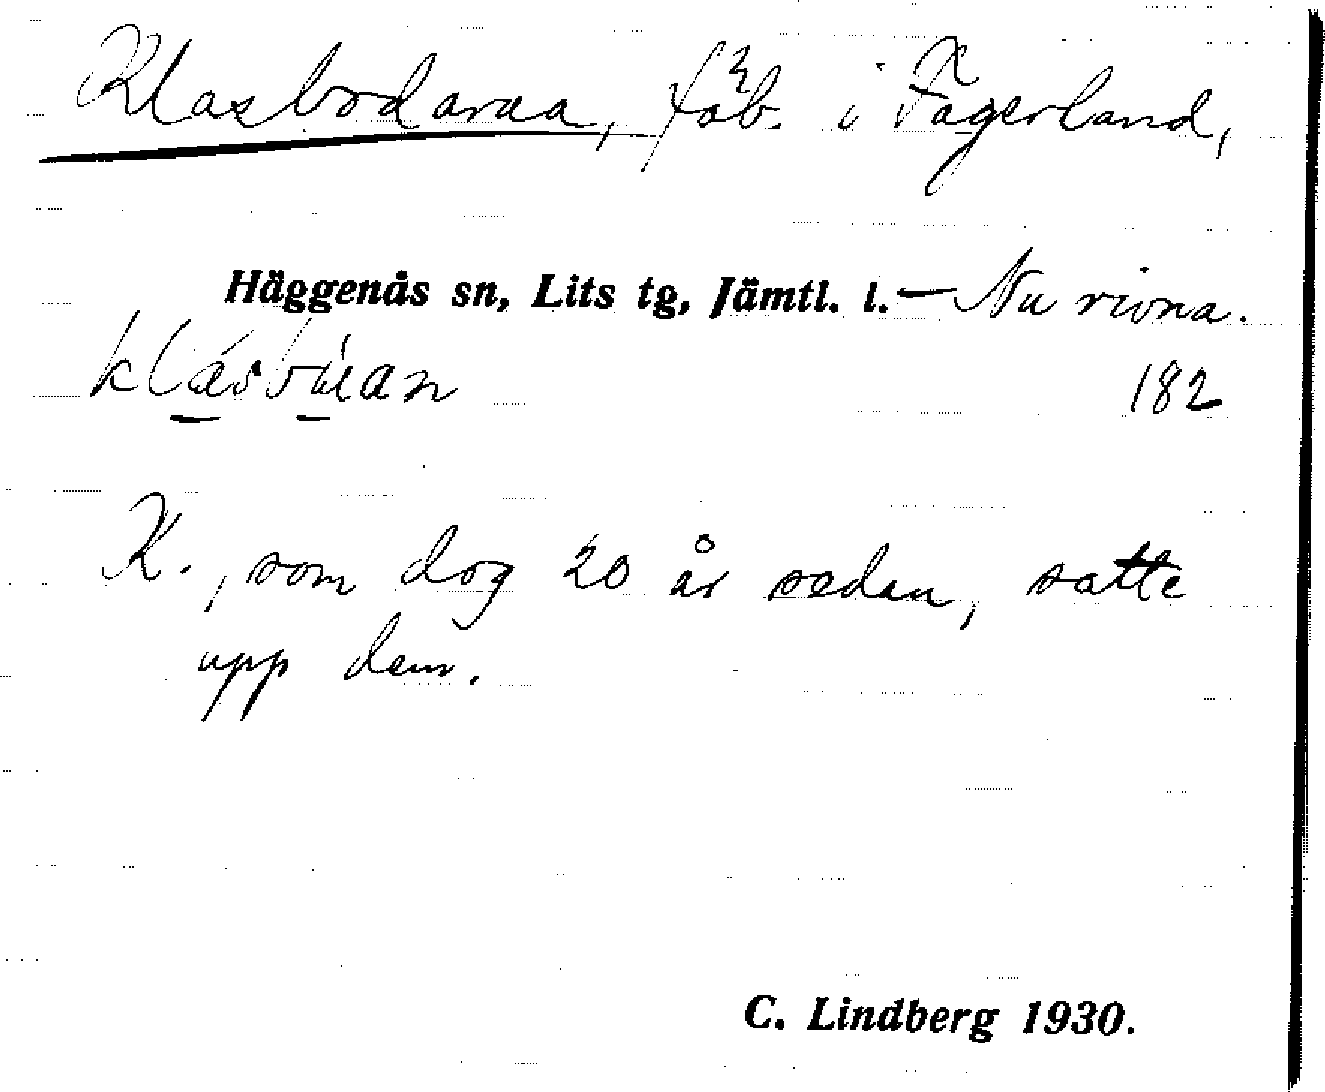 Klasbodarna, fäb. i Fagerland,
Häggenås sn, Lits tg, Jämtl. l. — Nu rivna.
182
K., som dog 20 år sedan, satte
upp dem.
C. Lindberg 1930.